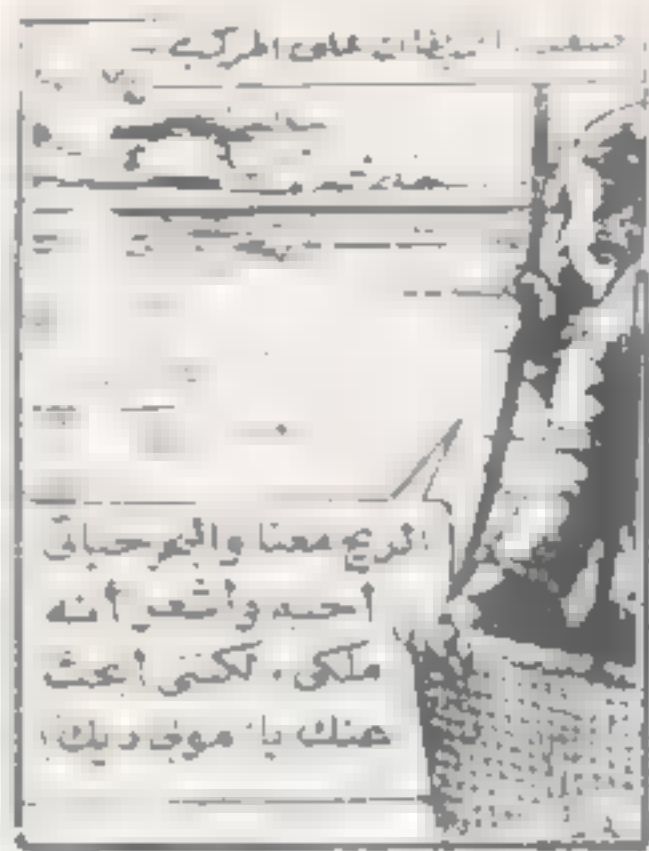 على المركب
الريح معنا والبحر حياتى
أحبه وأشعر أنه
ملكى. لكنى أبحث
عنك يا موبى ديك!